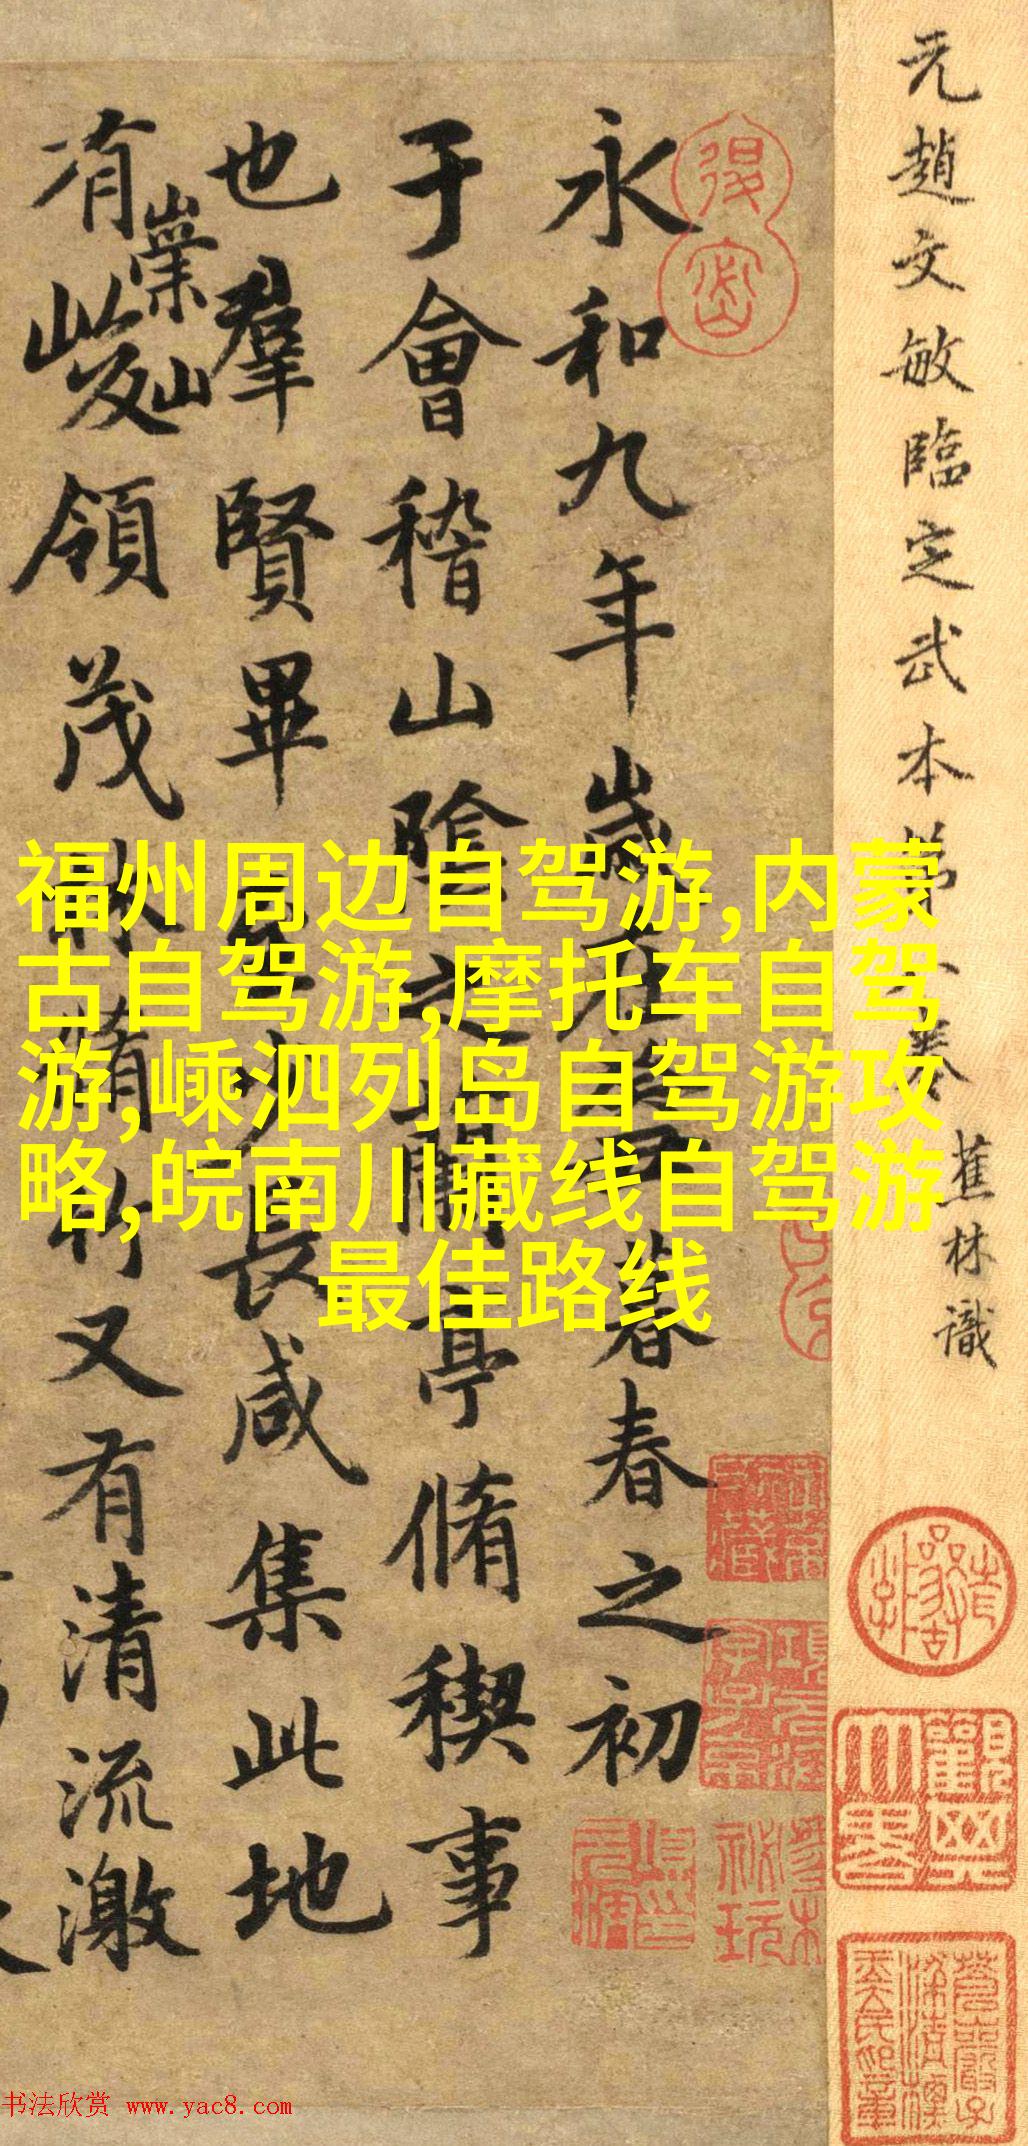 元趙文敏臨定武本第八卷
蕉林識
永和九年歲在癸丑暮春之初
于會稽山陰之蘭亭脩稧事
也羣賢畢至少長咸集此地
有崇山
峻領茂林脩竹又有清流激
福州周边自驾游,内蒙
古自驾游,摩托车自驾
游,嵊泗列岛自驾游攻
略,皖南川藏线自驾游
最佳路线
书法欣赏 www.yac8.com